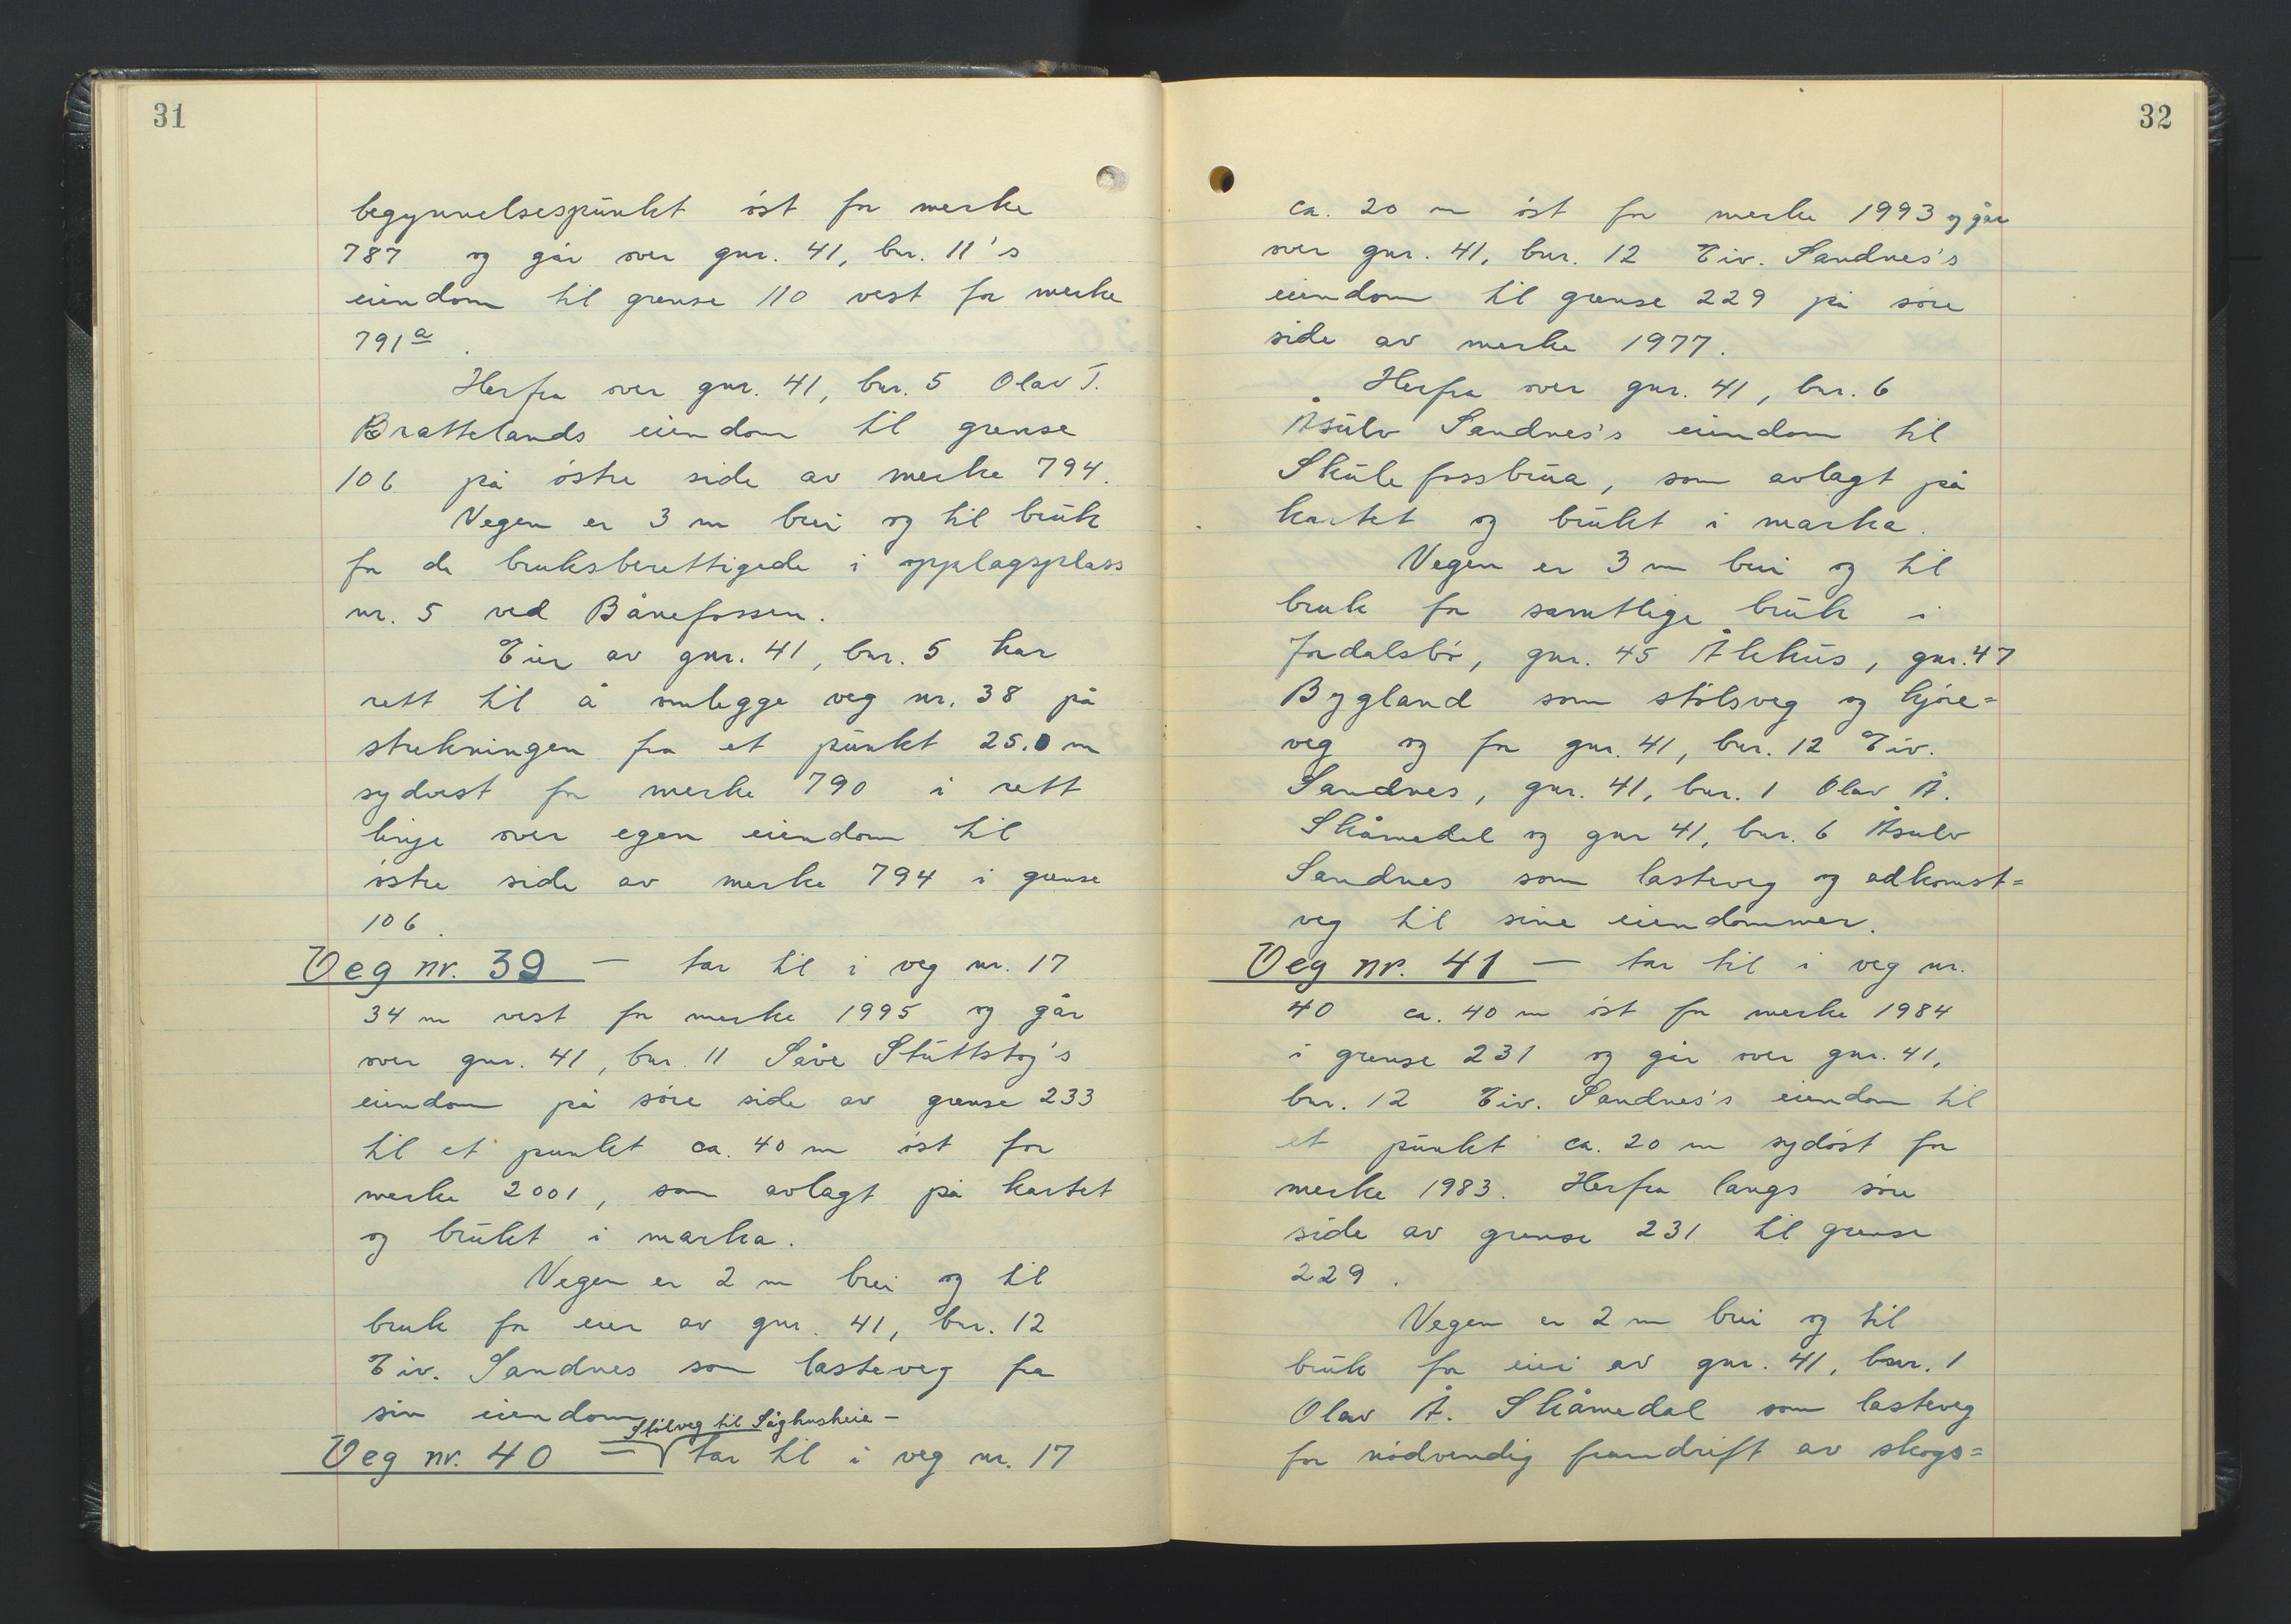 31
begynnelsespunkt öst for merke
787 og går over gnr. 41, bnr. 11's
eiendom til grense 110 vest for merke
791a.
Herfra over gnr. 41, bnr. 5 Olav T.
Brattelands eiendom til grense
106 på östre side av merke 794.
Vegen er 3 m brei og til bruk
for de bruksberettigede i opplagsplass
nr. 5 ved Bånefossen.
Eier av gnr. 41, bnr. 5 har
rett til å omlegge veg nr. 38 på
strekningen fra et punkt 25.0 m
sydvest for merke 790 i rett
linje over egen eiendom til
östre side av merke 794 i grense
106.
Veg nr. 39 — tar til i veg nr. 17
34 m vest for merke 1995 og går
over gnr. 41, bnr. 11 Såve Stuttstog's
eiendom på söre side av grense 233
til et punkt ca. 40 m öst for
merke 2001, som avlagt på kartet
og brukt i marka.
Vegen er 2 m brei og til
bruk for eier av gnr. 41, bnr. 12
Eiv. Sandnes som lasteveg fra
sin eiendom
Stölveg til Såghusheie —
Veg nr. 40 — tar til i veg nr. 17
32
ca. 20 m öst for merke 1993 og går
over gnr. 41, bnr. 12 Eiv. Sandnes's
eiendom til grense 229 på söre
side av merke 1977.
Herfra over gnr. 41, bnr. 6
Åsulv Sandnes's eiendom til
Skulefossbrua, som avlagt på
kartet og brukt i marka.
Vegen er 3 m brei og til
bruk for samtlige bruk i
Jordalsbö, gnr. 45 Åkhus, gnr. 47
Bygland som stölsveg og kjöre=
veg og for gnr. 41, bnr. 12 Eiv.
Sandnes, gnr. 41, bnr. 1 Olav Å.
Skåmedal og gnr 41, bnr. 6 Åsulv
Sandnes som lasteveg og adkomst=
veg til sine eiendommer.
Veg nr. 41 — tar til i veg nr.
40 ca. 40 m öst for merke 1984
i grense 231 og går over gnr. 41,
bnr. 12 Eiv. Sandnes's eiendom til
et punkt ca. 20 m sydöst for
merke 1983. Herfra langs söre
side av grense 231 til grense
229.
Vegen er 2 m brei og til
bruk for eier av gnr. 41, bnr. 1
Olav Å. Skåmedal som lasteveg
for nödvendig framdrift av skogs=